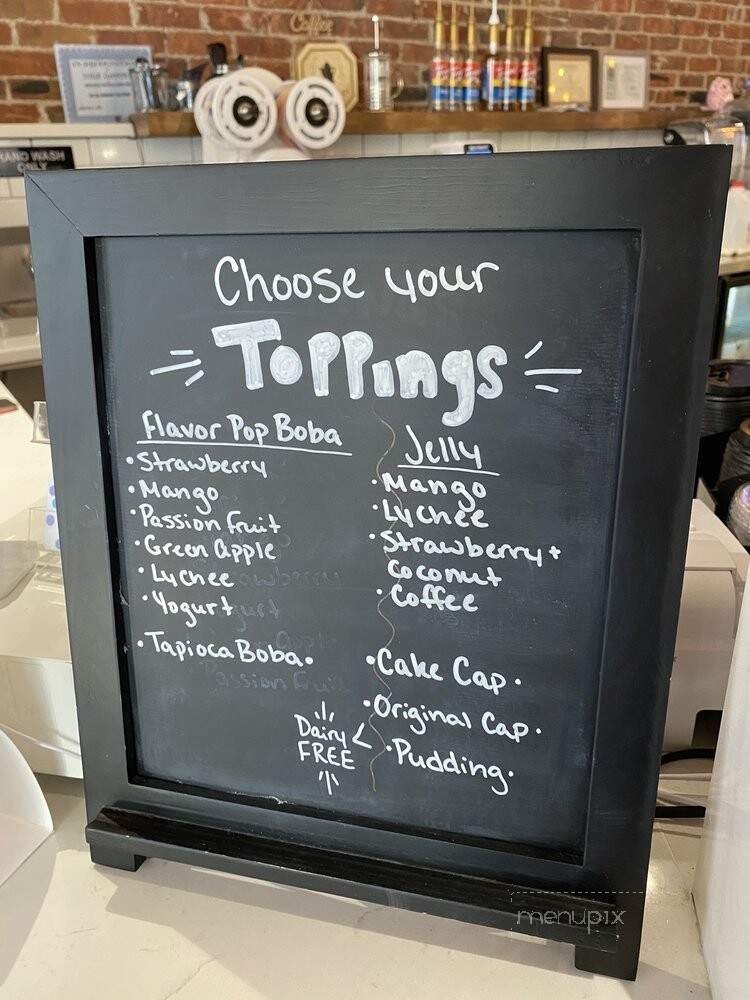 Coffee
HAND WASH
ONLY
Choose your
TOPPINGS
Flavor Pop Boba
• Strawberry
• Mango
• Passion Fruit
• Green Apple
• Lychee
• Yogurt
• Tapioca Boba •
Jelly
• Mango
• Lychee
• Strawberry +
Coconut
• Coffee
• Cake Cap •
• Original Cap •
Dairy <
FREE
• Pudding •
menupix